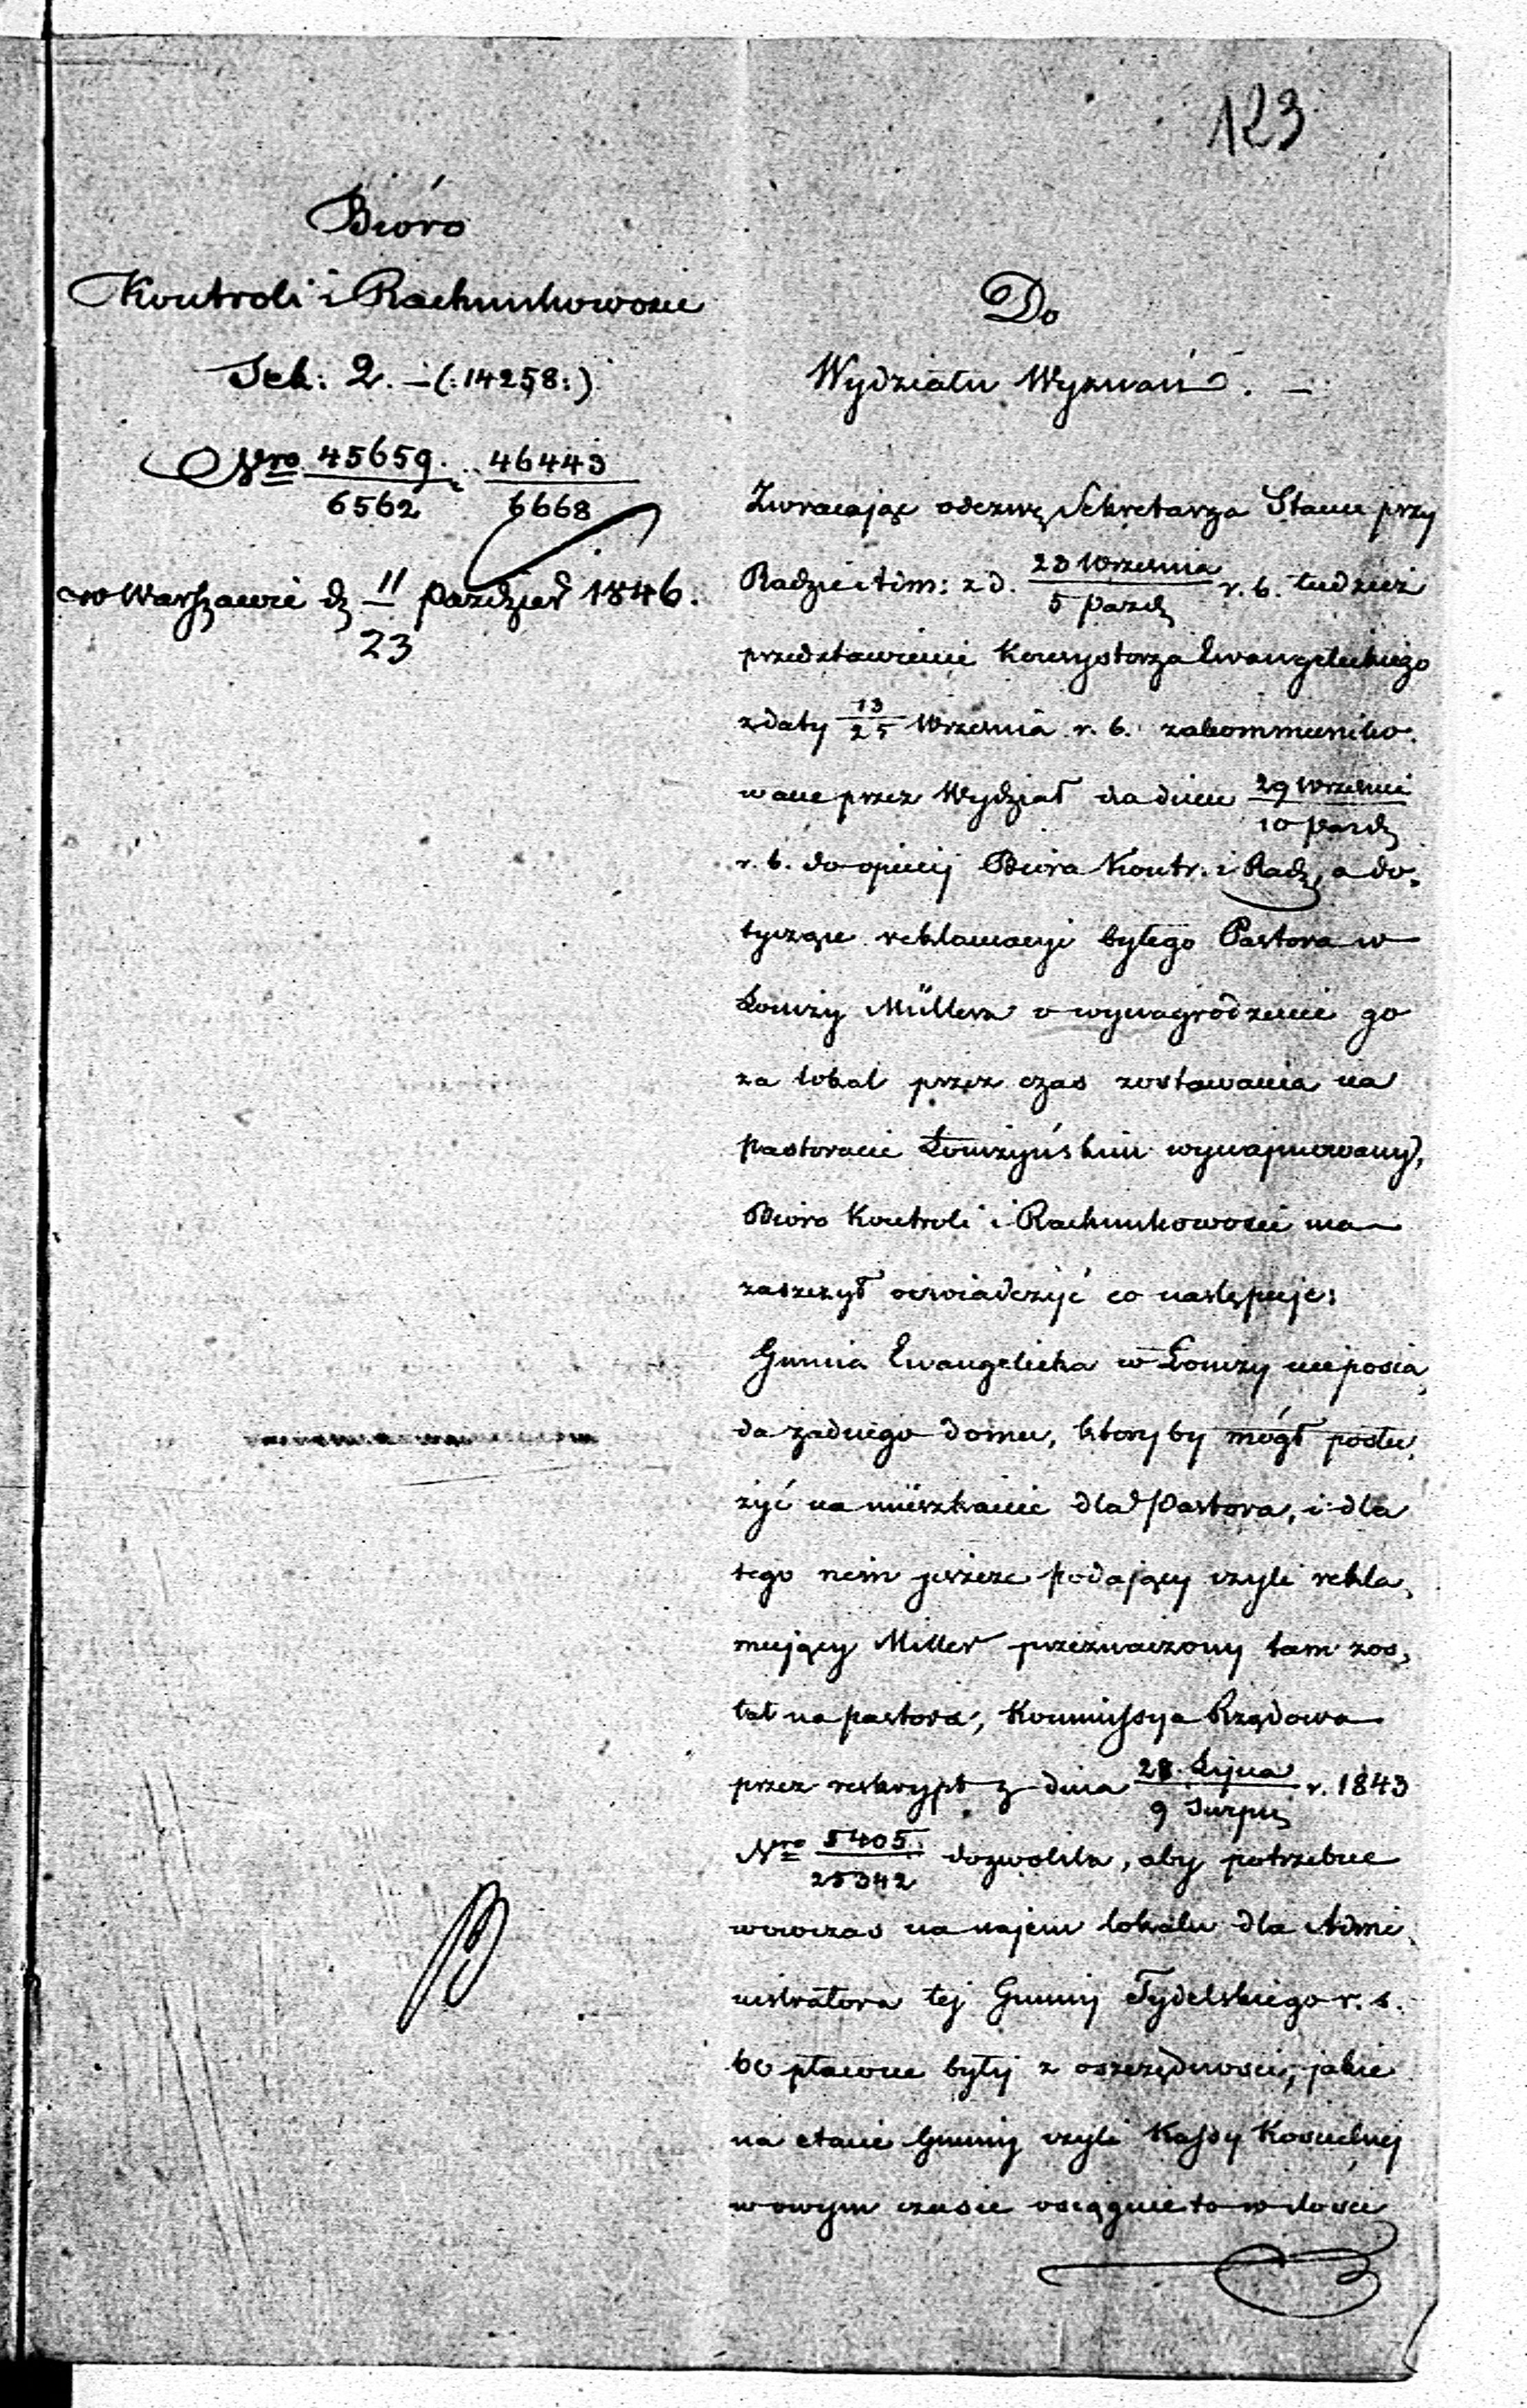 123
Bióro
Kontroli i Rachunkowości
Sek: 2. – (:14258:)
Nro 45659. 46443
6562 6668
w Warszawie dz 11 Paździer 1846.
23
Do
Wydziału Wyznań. –
Zwracając odezwę Sekretarza Stanu przy
Radzie Adm: z d. 23 Września r. b. tudzież
5 Paźdz
przedstawienie Konsystorza Ewangelickiego
z daty 13 Września r. b. zakommuniko-
25
wane przez Wydział na dniu 29 Wrześni
10 Paźdz
r. b. do opinij Biura Kontr. i Rach, a do-
tyczące reklamacyi byłego Pastora w
Łomży Müllera o wynagrodzenie go
za lokal przez czas zostawania na
pastoracie Łomżyńskim wynajmowany,
Bióro Kontroli i Rachunkowości ma
zaszczyt oświadczyć co następuje:
Gmina Ewangelicka w Łomży nieposia-
da żadnego domu, któryby mógł posłu-
żyć na mieszkanie dla Pastora, i dla
tego nim jeszcze podający czyli rekla-
mujący Miller przeznaczony tam zos-
tał na pastora, Kommissya Rządowa
przez reskrypt z dnia 28 Lipca r. 1843
9 Sierpn
Nro 5405 dozwoliła, aby potrzebne
25342
wówczas na najem lokalu dla Admi-
nistratora tej Gminy Tydelskiego r. s.
60 płacone były z oszczędności, jakie
na etacie Gminy czyli Kassy Kościelnej
w owym czasie osiągnięto w ilości